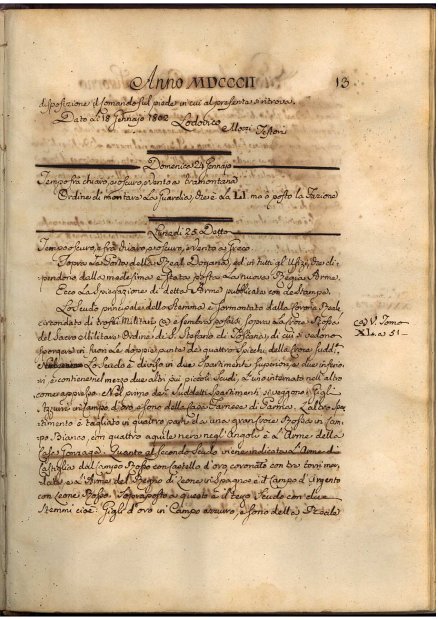 Anno MDCCCII 13
disposizione, e formando sul piede in cui al presente si ritrova.
Dato a 18 Gennajo 1802 Lodovico
Mozzi Testori
Domenica 24 Gennajo
Tempo fra chiaro, e oscuro, e vento a Tramontana
Ordine di montare La Guardia, che è La LI. ma è posto la Fazione
Lunedì 25 Detto
Tempo oscuro, e fra chiaro, e oscuro, e vento a Greco
Sopra La Porta della Real Dogana, ed in tutti gl'Ufizi, che di=
pendono dalla medesima è stata posta La nuova Regia Arme.
Ecco La Spiegazione di detta Arme pubblicata con le Stampe.
Lo Scudo principale dello Stemma è sormontato dalla Corona Reale,
circondato di trofei Militari (a) e sembra posato sopra La Croce Rossa
del Sacro Militare Ordine di S. Stefano di Toscana, di cui si vedono
sporgare in fuori Le doppie punte de quattro spicchi della Croce sudd.ta
Lo Scudo è diviso in due Spartimenti Superiori, e due inferio
ri, e contiene nel mezzo due altri più piccoli Scudi, L'uno intornato nell'altro
come appresso. Nel primo de Suddetti Spartimenti si veggono i Gigli
Azzurri in campo d'oro, e sono della Casa Farnese di Parma. L'altro Spar
timento è tagliato in quattro parti da una gran Croce Rossa in Cam
po Bianco, con quattro aquile nere negl'Angoli e l'Arme della
Casa Gonzaga. Quanto al secondo Scudo viene indicata L'Arme di
Castiglia dal campo Rosso con Castello d'oro coronato con tre torri mer
late e L'Arme del Regno di Leone in Spagna e il Campo d'Argento
con Leone Rosso. Sovrapposto a questo è il terzo Scudo con due
Stemmi cioè: Gigli d'oro in Campo azzurro, e sono della Reale
(a) V. Tomo
XI. a 51-